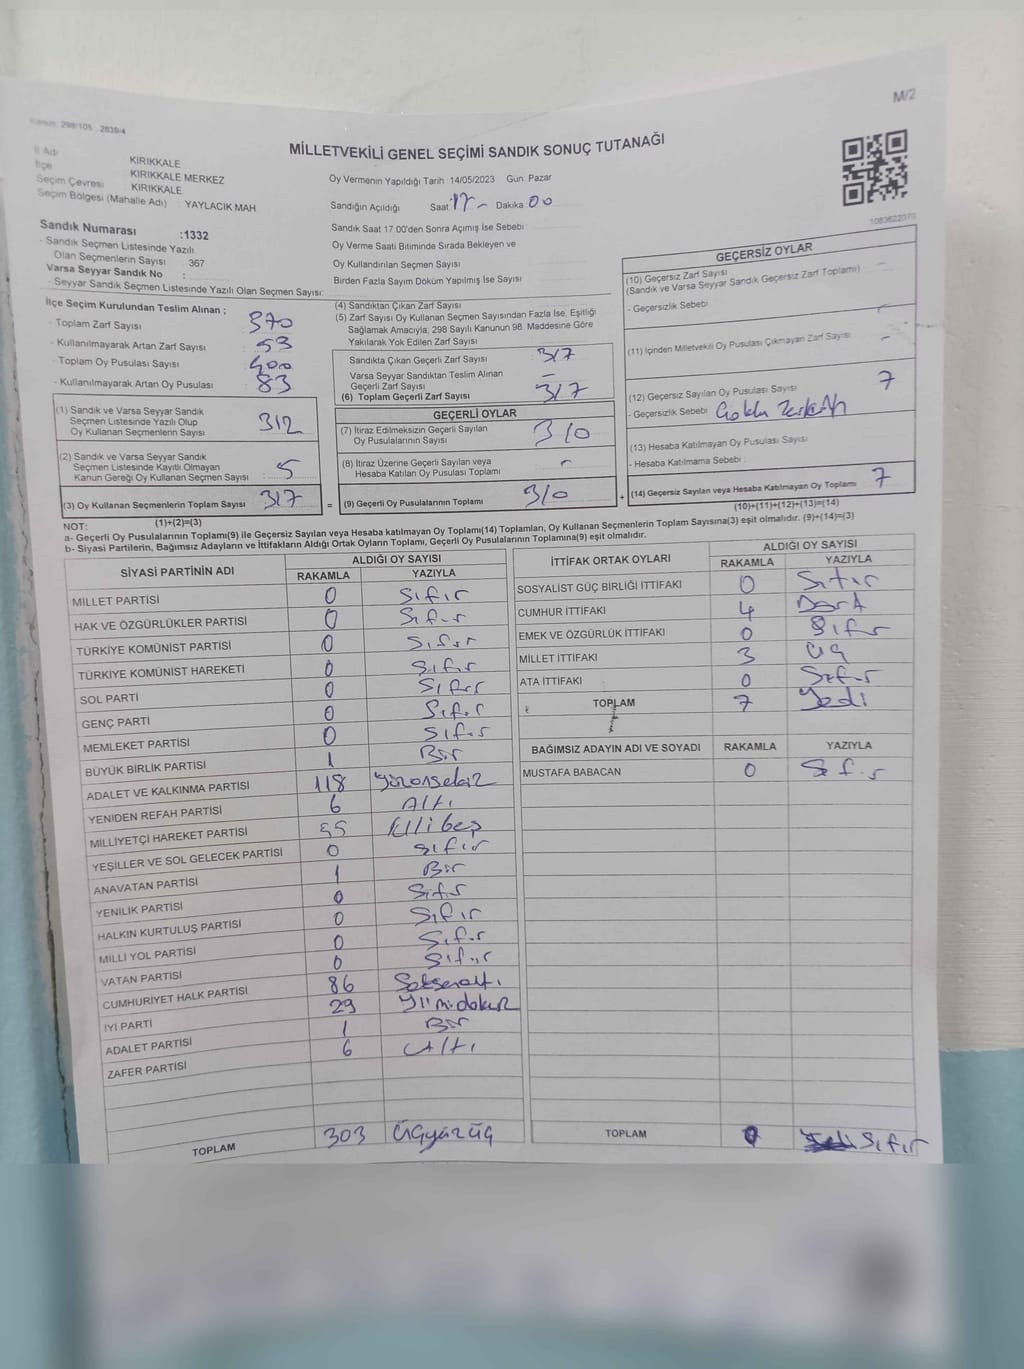 M/2
Kanun: 298/105 , 2839/4
MİLLETVEKİLİ GENEL SEÇİMİ SANDIK SONUÇ TUTANAĞI
İl Adı KIRIKKALE
İlçe KIRIKKALE MERKEZ
Seçim Çevresi KIRIKKALE
Seçim Bölgesi (Mahalle Adı) YAYLACIK MAH
Oy Vermenin Yapıldığı Tarih :14/05/2023 Gün: Pazar
Sandığın Açıldığı Saat 17 - Dakika 00
Sandık Saat 17.00'den Sonra Açımış İse Sebebi
Oy Verme Saati Bitiminde Sırada Bekleyen ve
Oy Kullandırılan Seçmen Sayısı
Birden Fazla Sayım Döküm Yapılmış İse Sayısı
1083622070
Sandık Numarası :1332
- Sandık Seçmen Listesinde Yazılı
Olan Seçmenlerin Sayısı 367
Varsa Seyyar Sandık No :
- Seyyar Sandık Seçmen Listesinde Yazılı Olan Seçmen Sayısı:
İlçe Seçim Kurulundan Teslim Alınan ;
- Toplam Zarf Sayısı 370
- Kullanılmayarak Artan Zarf Sayısı 53
- Toplam Oy Pusulası Sayısı 400
- Kullanılmayarak Artan Oy Pusulası 83
(1) Sandık ve Varsa Seyyar Sandık
Seçmen Listesinde Yazılı Olup
Oy Kullanan Seçmenlerin Sayısı 312
(2) Sandık ve Varsa Seyyar Sandık
Seçmen Listesinde Kayıtlı Olmayan
Kanun Gereği Oy Kullanan Seçmen Sayısı : 5
(3) Oy Kullanan Seçmenlerin Toplam Sayısı 317
(1)+(2)=(3)
(4) Sandıktan Çıkan Zarf Sayısı
(5) Zarf Sayısı Oy Kullanan Seçmen Sayısından Fazla İse, Eşitliği
Sağlamak Amacıyla, 298 Sayılı Kanunun 98. Maddesine Göre
Yakılarak Yok Edilen Zarf Sayısı
Sandıkta Çıkan Geçerli Zarf Sayısı 317
Varsa Seyyar Sandıktan Teslim Alınan
Geçerli Zarf Sayısı -
(6) Toplam Geçerli Zarf Sayısı 317
GEÇERLİ OYLAR
(7) İtiraz Edilmeksizin Geçerli Sayılan
Oy Pusulalarının Sayısı 310
(8) İtiraz Üzerine Geçerli Sayılan veya
Hesaba Katılan Oy Pusulası Toplamı -
= (9) Geçerli Oy Pusulalarının Toplamı 310
GEÇERSİZ OYLAR
(10) Geçersiz Zarf Sayısı
(Sandık ve Varsa Seyyar Sandık Geçersiz Zarf Toplamı) -
- Geçersizlik Sebebi
(11) İçinden Milletvekili Oy Pusulası Çıkmayan Zarf Sayısı -
(12) Geçersiz Sayılan Oy Pusulası Sayısı 7
- Geçersizlik Sebebi
(13) Hesaba Katılmayan Oy Pusulası Sayısı
- Hesaba Katılmama Sebebi
+ (14) Geçersiz Sayılan veya Hesaba Katılmayan Oy Toplamı 7
(10)+(11)+(12)+(13)=(14)
NOT:
a- Geçerli Oy Pusulalarının Toplamı(9) ile Geçersiz Sayılan veya Hesaba katılmayan Oy Toplamı(14) Toplamları, Oy Kullanan Seçmenlerin Toplam Sayısına(3) eşit olmalıdır. (9)+(14)=(3)
b- Siyasi Partilerin, Bağımsız Adayların ve İttifakların Aldığı Ortak Oyların Toplamı, Geçerli Oy Pusulalarının Toplamına(9) eşit olmalıdır.
SİYASİ PARTİNİN ADI ALDIĞI OY SAYISI
RAKAMLA YAZIYLA
MİLLET PARTİSİ 0 Sıfır
HAK VE ÖZGÜRLÜKLER PARTİSİ 0 Sıfır
TÜRKİYE KOMÜNİST PARTİSİ 0 Sıfır
TÜRKİYE KOMÜNİST HAREKETİ 0 Sıfır
SOL PARTİ 0 Sıfır
GENÇ PARTİ 0 Sıfır
MEMLEKET PARTİSİ 0 Sıfır
BÜYÜK BİRLİK PARTİSİ 1 Bir
ADALET VE KALKINMA PARTİSİ 118 Yüzonsekiz
YENİDEN REFAH PARTİSİ 6 Altı
MİLLİYETÇİ HAREKET PARTİSİ 55 Ellibeş
YEŞİLLER VE SOL GELECEK PARTİSİ 0 Sıfır
ANAVATAN PARTİSİ 1 Bir
YENİLİK PARTİSİ 0 Sıfır
HALKIN KURTULUŞ PARTİSİ 0 Sıfır
MİLLİ YOL PARTİSİ 0 Sıfır
VATAN PARTİSİ 0 Sıfır
CUMHURİYET HALK PARTİSİ 86 Seksenaltı
İYİ PARTİ 29 Yirmidokuz
ADALET PARTİSİ 1 Bir
ZAFER PARTİSİ 6 Altı
TOPLAM 303 Üçyüzüç
İTTİFAK ORTAK OYLARI ALDIĞI OY SAYISI
RAKAMLA YAZIYLA
SOSYALİST GÜÇ BİRLİĞİ İTTİFAKI 0 Sıfır
CUMHUR İTTİFAKI 4 Dört
EMEK VE ÖZGÜRLÜK İTTİFAKI 0 Sıfır
MİLLET İTTİFAKI 3 Üç
ATA İTTİFAKI 0 Sıfır
TOPLAM 7 Yedi
BAĞIMSIZ ADAYIN ADI VE SOYADI RAKAMLA YAZIYLA
MUSTAFA BABACAN 0 Sıfır
TOPLAM 0 Sıfır